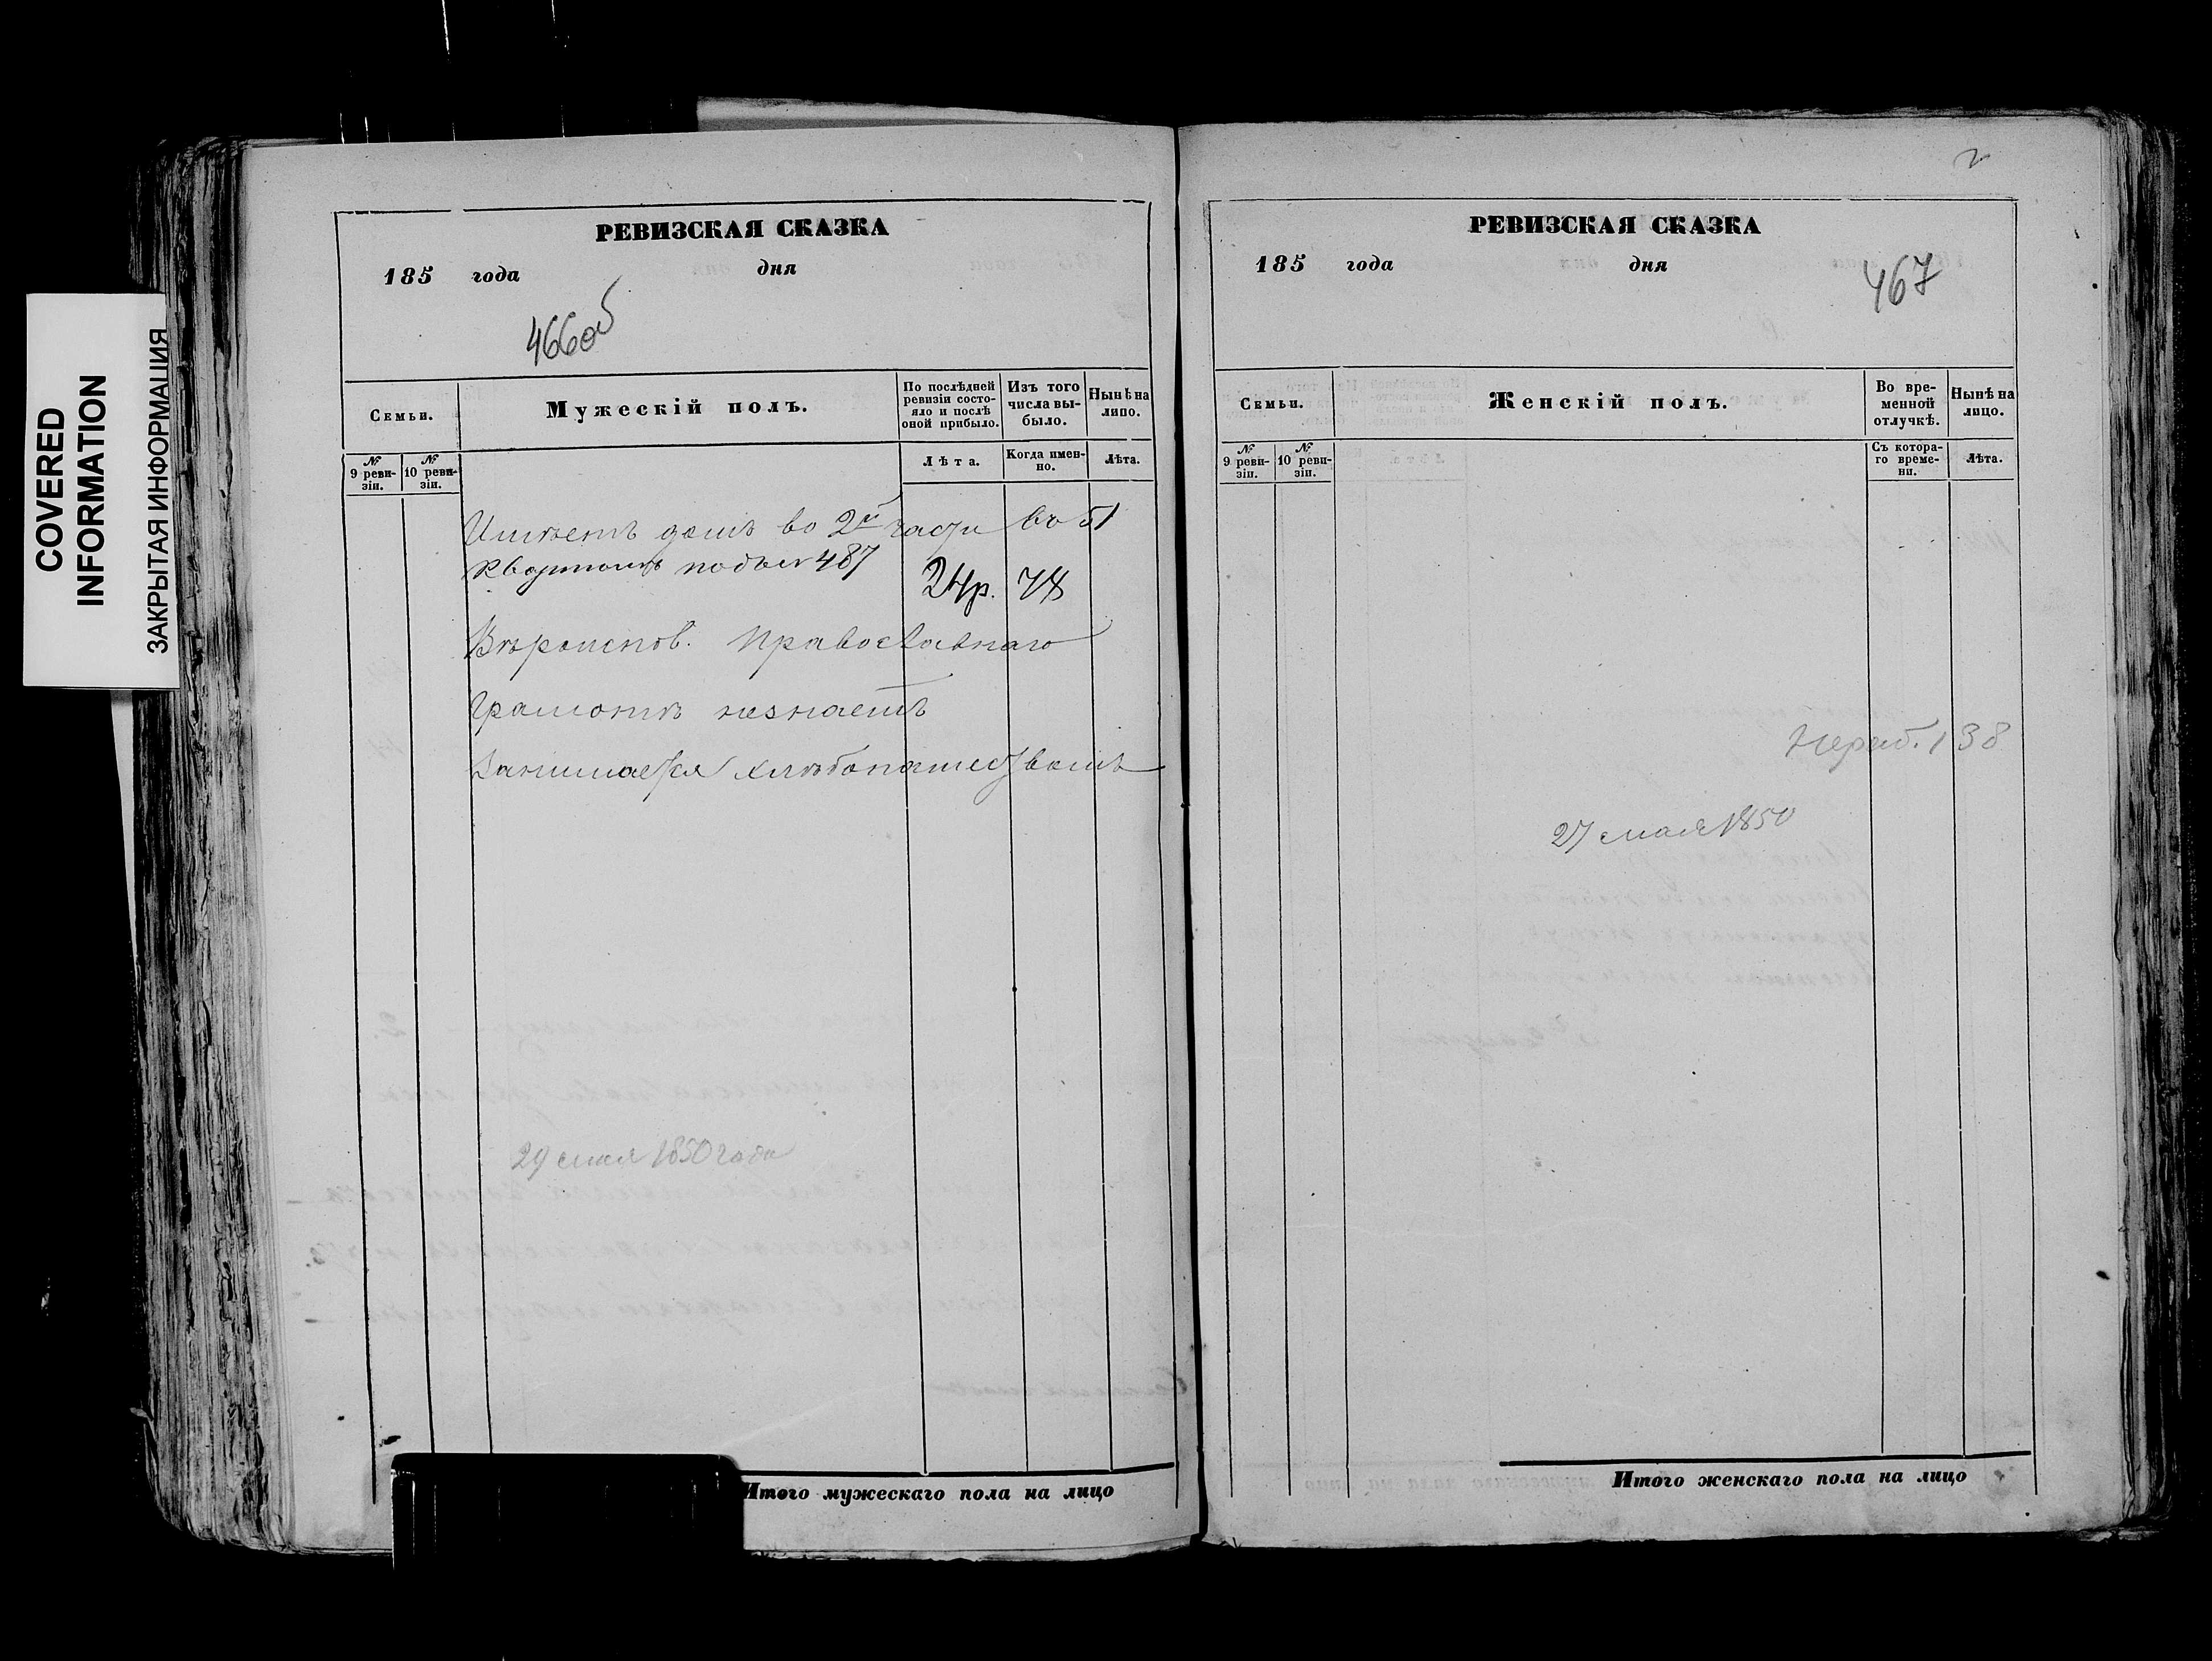 COVERED
INFORMATION
ЗАКРЫТАЯ ИНФОРМАЦИЯ
РЕВИЗСКАЯ СКАЗКА
185 года дня
466об
Семьи.
Мужескій полъ.
По послѣдней ревизіи состояло и послѣ оной прибыло.
Изъ того числа выбыло.
Нынѣ на лицо.
№ 9 ревизіи.
№ 10 ревизіи.
Лѣта.
Когда именно.
Лѣта.
Имѣетъ домъ во 2й части въ 51
кварталѣ подъ № 487
24р. 78
Вѣроисповѣ. Православнаго
Грамотѣ незнаетъ
Занимается хлѣбопашествомъ
29 мая 1850 года
Итого мужескаго пола на лицо
2
РЕВИЗСКАЯ СКАЗКА
185 года дня
467
Семьи.
Женскій полъ.
Во временной отлучкѣ.
Нынѣ на лицо.
№ 9 ревизіи.
№ 10 ревизіи.
Съ котораго времени.
Лѣта.
138
27 мая 1850
Итого женскаго пола на лицо